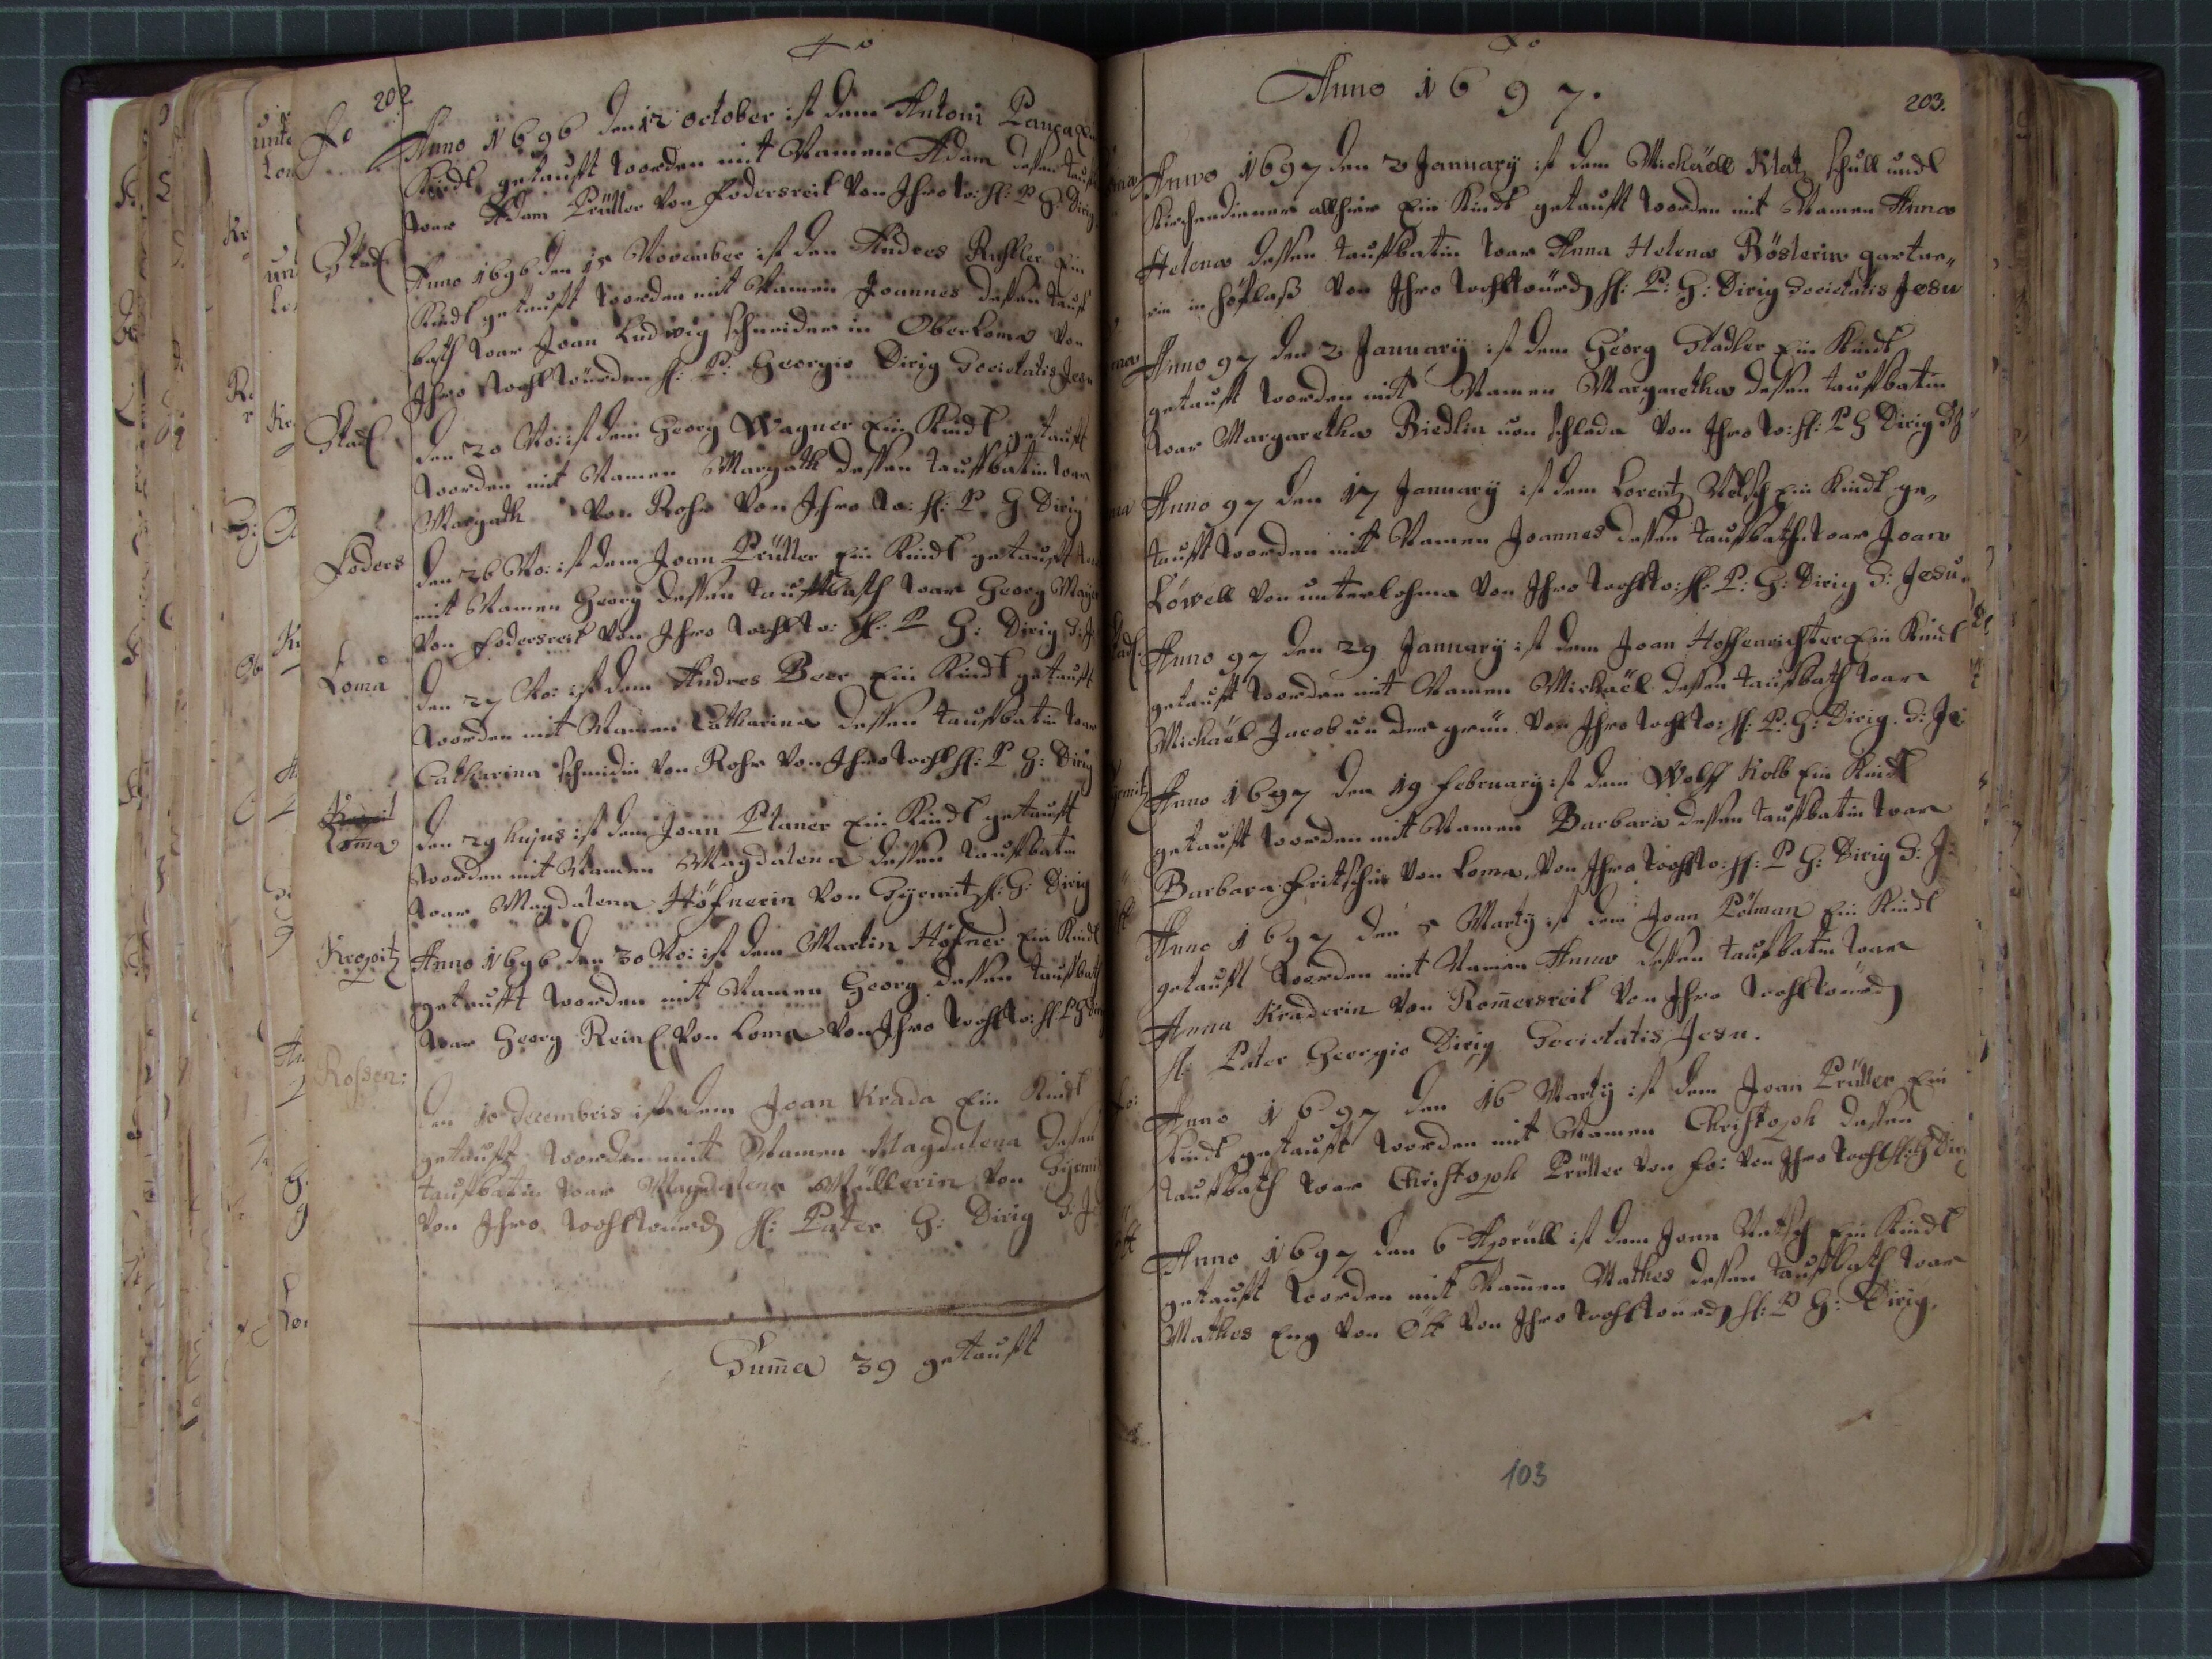 202
Fo
Anno 1696 den 12 october ist dem Antoni Panga Ein
Kindt getaufft worden mit Namen Adam dessen tauff
war Adam Prütter von fodersreit von Ihro w: H: P G: Dirig
Stad
Anno 1696 den 15 November ist den Andres Ein
Kindt getaufft worden mit Namen Joannes dessen tauff
bath war Joan Ludwig schneider in Oberloma von
Ihro wohl würden H: P: Georgio Dirig Societatis Jesu
Stad
den 20 No: ist dem Georg Wagner Ein Kindt getaufft
worden mit Namen Margath dessen tauffbatin war
Margath von Rohr von Ihro w: H: P G Dirig
Foders
den 26 No: ist dem Joan Prütter Ein Kindt getaufft
mit Namen Georg dessen tauffbath war Georg
von fodersreit von Ihro wohl w: H: P G: Dirig S: J
Loma
den 27 No: ist dem Andres Beer Ein Kindt getaufft
worden mit Namen Catharina dessen tauffbatin war
Catharina schmidin von Rohr von Ihro wohl H: P G: Dirig
Loma
den 29 hujus ist dem Joan Planer Ein Kindt getaufft
worden mit Namen Magdalena dessen tauffbatin
war Magdalena Höfnerin von Gyrmitz H: G: Dirig
Kropitz
Anno 1696 den 30 No: ist dem Martin Höfner Ein Kindt
getaufft worden mit Namen Georg dessen tauffbath
war Georg Reinl von Loma von Ihro wohl w: H: P G Dirig
Rossen:
den 10 decembris ist dem Joan Krada Ein Kindt
getaufft worden mit Namen Magdalena dessen
tauffbatin war Magdalena Müllerin von Gyrmi
von Ihro wohl würd H: Pater G: Dirig S: J
Summa 39 getaufft
Anno 1697.
203.
Anno 1697 den 3 January ist dem Michäell Klatz schull undt
Kirchendiener allhier Ein Kindt getaufft worden mit Namen Anna
Helena dessen tauffbatin war Anna Helena Böslerin gartne„
rin in höflaß von Ihro wohlwürd H: P: G: Dirig Societatis Jesu
Anno 97 den 3 January ist dem Georg Stadler Ein Kindt
getaufft worden mit Namen Margaretha dessen tauffbatin
war Margaretha Riedlin von schlada von Ihro w: H: P G Dirig
Anno 97 den 17 January ist dem Lorentz Ein Kindt ge„
taufft worden mit Namen Joannes dessen tauffbath war Joan
Löwell von unterlohma von Ihro wohl w: H: P: G: Dirig S: Jesu.
Anno 97 den 29 January ist dem Joan Hossenrichter Ein Kindt
getaufft worden mit Namen Michäel dessen tauffbath war
Michäel Jacob von der grün von Ihro wohl w: H: P: G: Dirig. S: Je
Anno 1697 den 19 february ist dem Wolff Kolb Ein Kindt
getaufft worden mit Namen Barbara dessen tauffbatin war
Barbara fritschin von Loma von Ihro wohl w: H: P G: Dirig S: J:
Anno 1697 den 5 Marty ist dem Joan Pölman Ein Kindt
getaufft worden mit Namen Anna dessen tauffbatin war
Anna Kraderin von Romersreit von Ihro wohlwürd
H. Pater Georgio Dirig Societatis Jesu.
Anno 1697 den 16 Marty ist dem Joan Prütter Ein
Kindt getaufft worden mit Namen Christoph dessen
tauffbath war Christoph Prütter von fo: von Ihro wohl H: G Dirig
Anno 1697 den 6 Aprüll ist dem Joan Ein Kindt
getaufft worden mit Namen Mathes dessen tauffbath war
Mathes Eng von Ött von Ihro wohlwürd H: P G: Dirig.
103